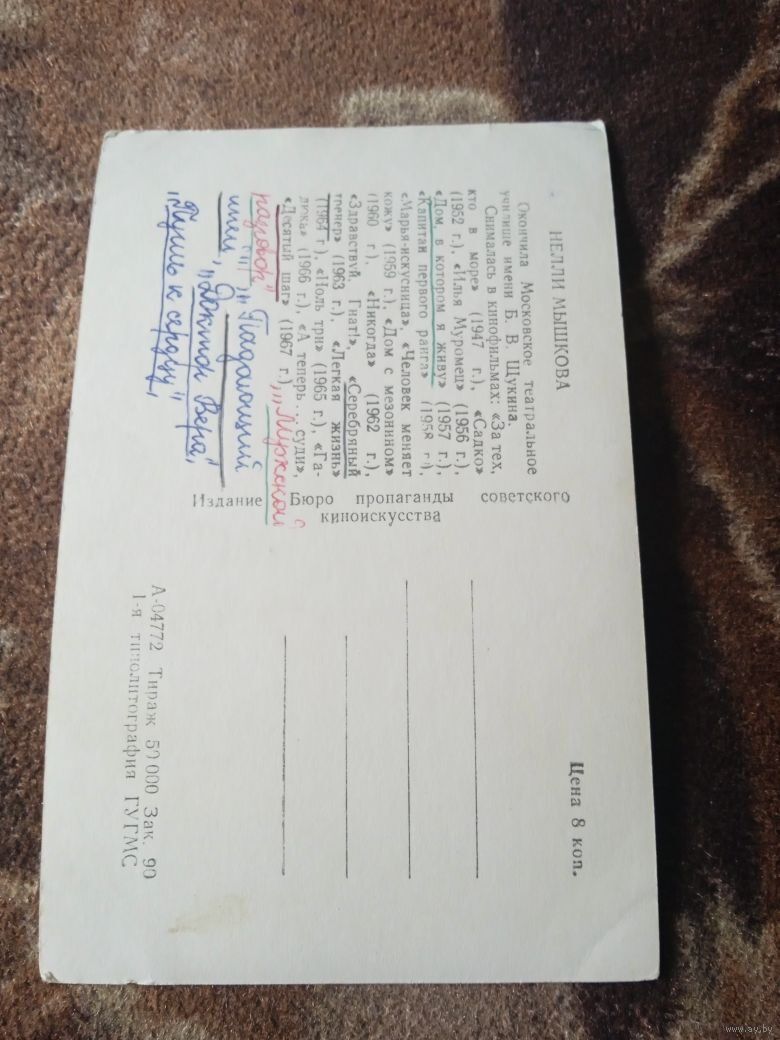 НЕЛЛИ МЫШКОВА
Окончила Московское театральное
училище имени Б. В. Щукина.
Снималась в кинофильмах: «За тех,
кто в море» (1947 г.), «Садко»
(1952 г.), «Илья Муромец» (1956 г.),
«Дом, в котором я живу» (1957 г.),
«Капитан первого ранга» (1958 г.),
«Марья-искусница», «Человек меняет
кожу» (1959 г.), «Дом с мезонином»
(1960 г.), «Никогда» (1962 г.),
«Здравствуй Гнат!», «Серебряный
тренер» (1963 г.), «Легкая жизнь»
(1964 г.), «Ноль три» (1965 г.), «Га-
дюка» (1966 г.), «А теперь... суди»,
«Десятый шаг» (1967 г.), „Мужской
разговор" „Падающий
иней", „Доктор Вера",
„Путь к сердцу",
Издание Бюро пропаганды советского
киноискусства
Цена 8 коп.
А-04772 Тираж 50 000 Зак. 90
1-я типолитография ГУГМС
www.ay.by